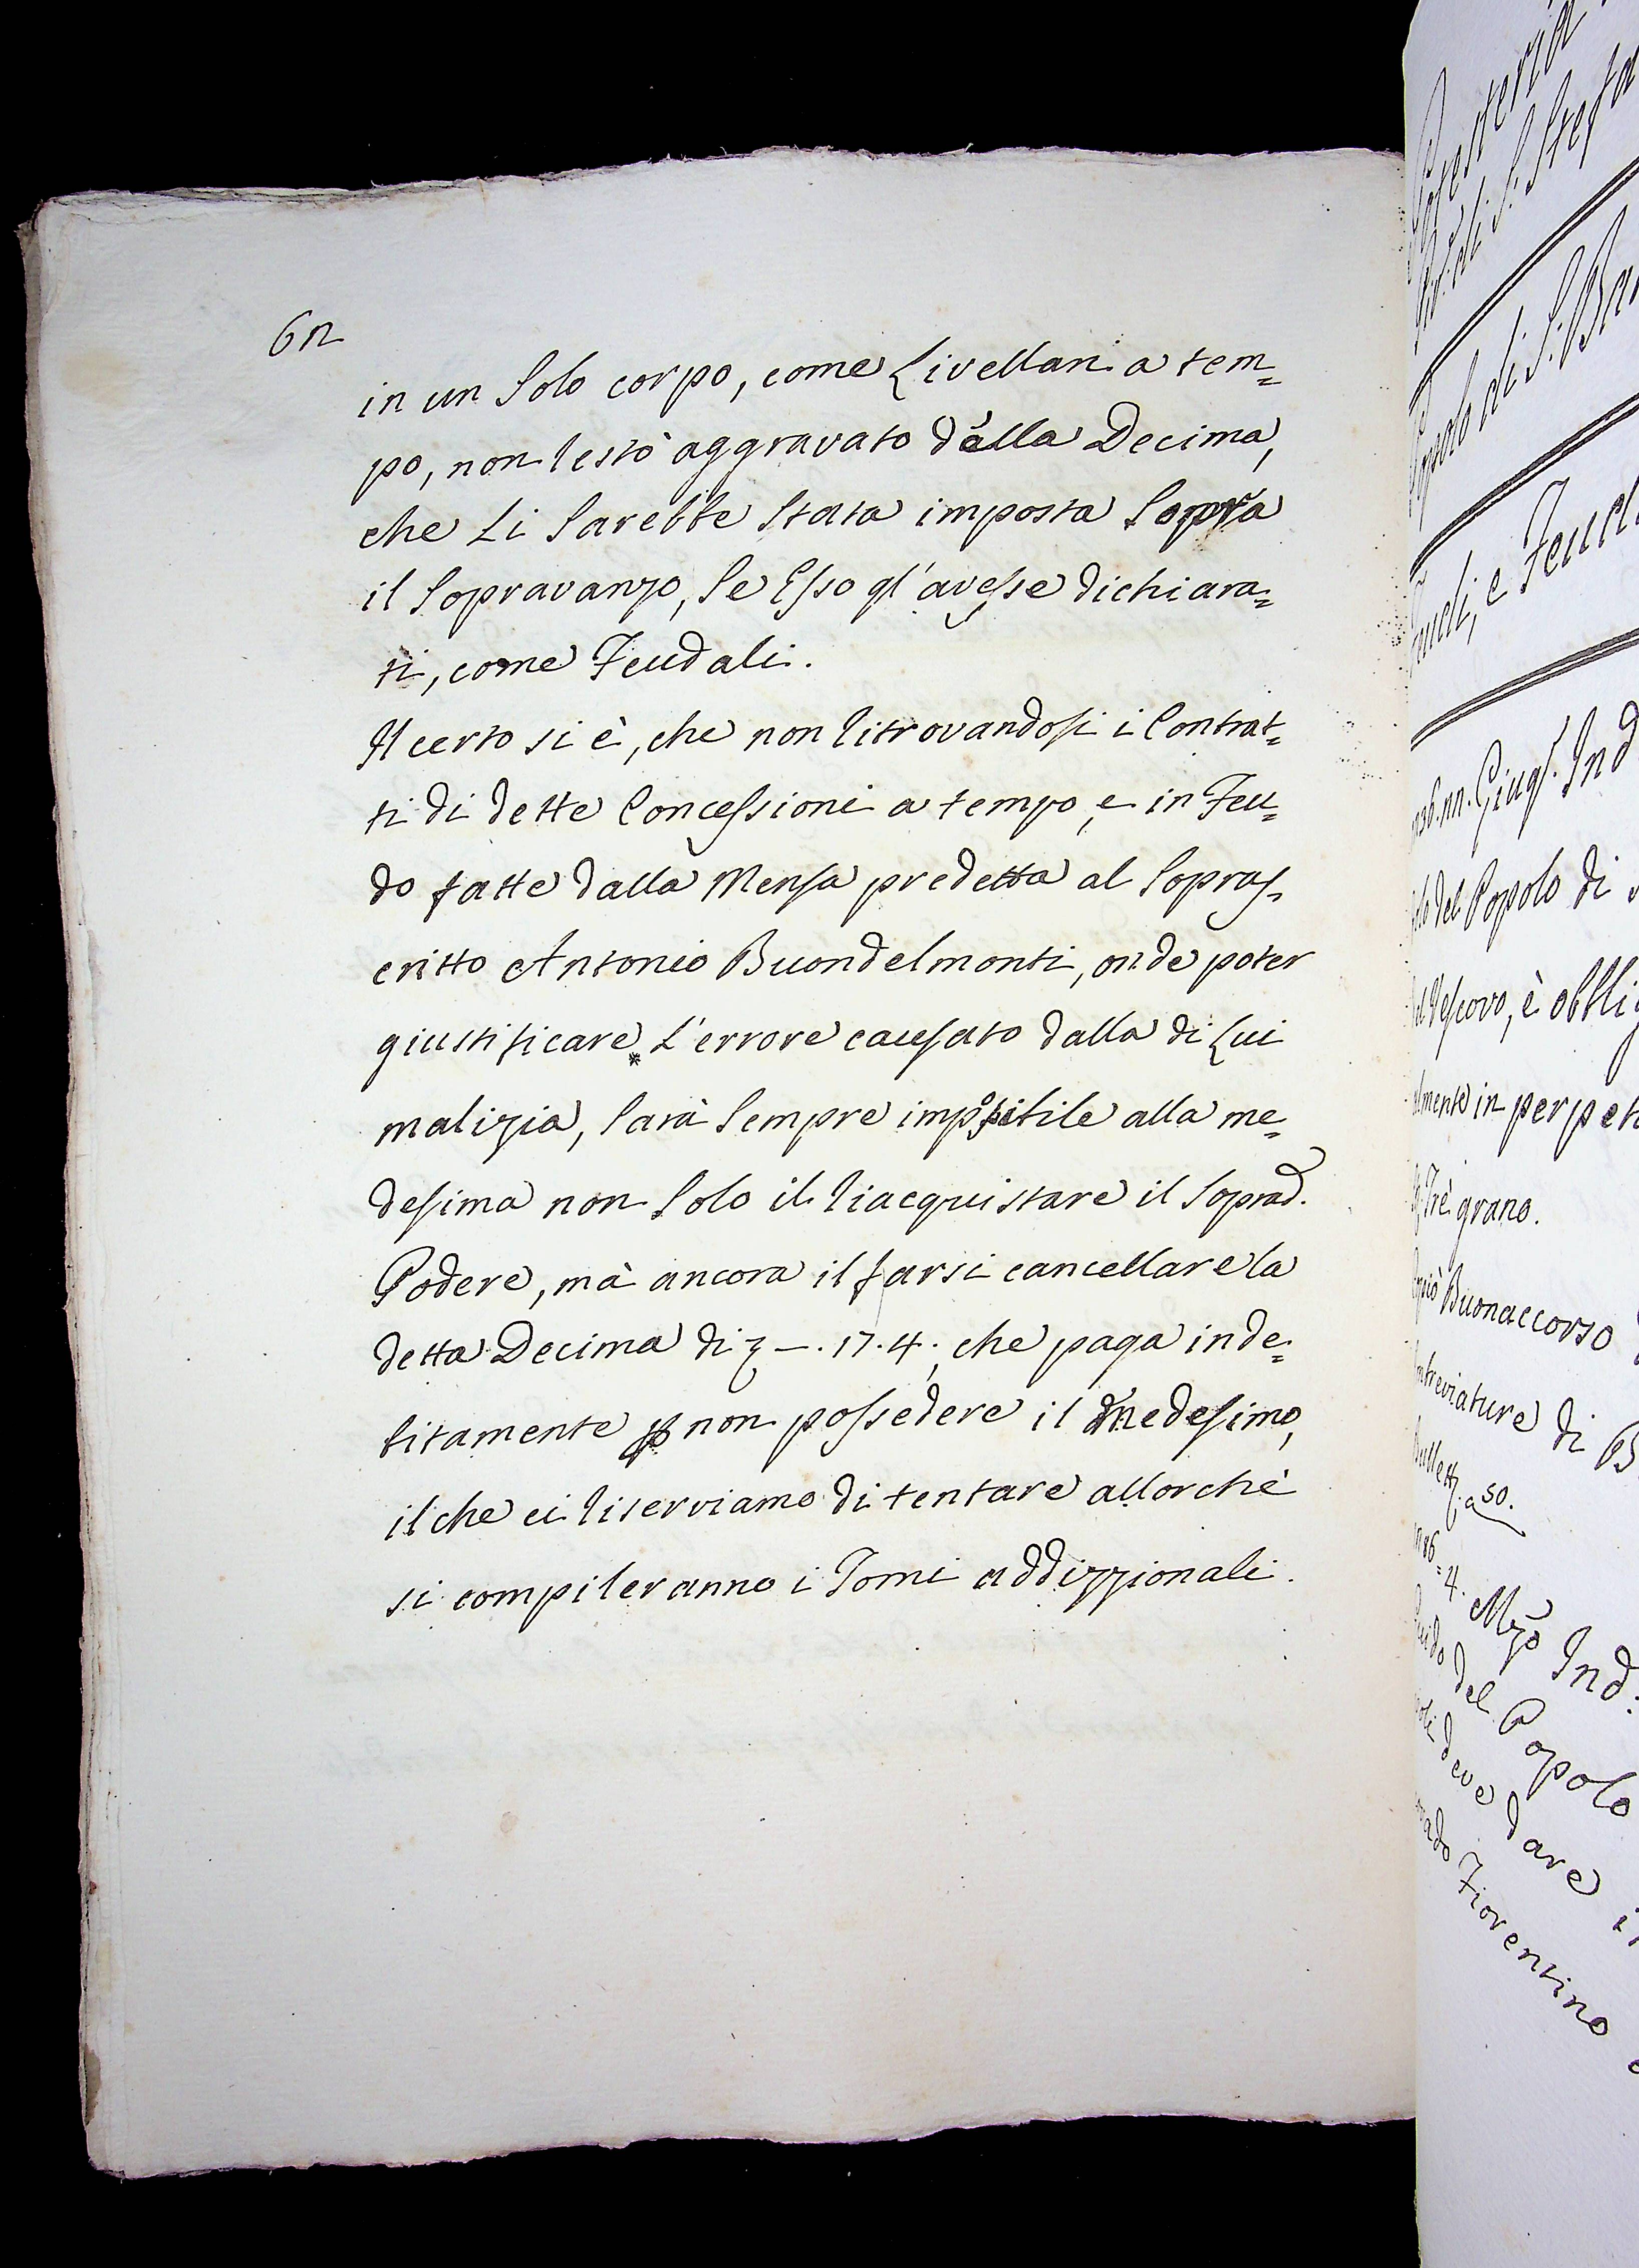 62
in un Solo corpo, come Livellari a tem=
po, non restò aggravato dalla Decima,
che Li Sarebbe Stata imposta Sopra
il Sopravanzo, Se Esso gl'avesse dichiara=
ti, come Feudali.
Il certo si è, che non ritrovandosi i Contrat=
ti di dette Concessioni a tempo, e in Feu=
do fatte dalla Mensa predetta al Sopras=
critto Antonio Buondelmonti, onde poter
giustificare L'errore causato dalla di Lui
malizia, Sarà Sempre impossibile alla me=
desima non Solo il riacquistare il Soprad.
Podere, mà ancora il farsi cancellare la
detta Decima di — . 17. 4. , che paga inde=
bitamente p non possedere il Medesimo,
il che ci riserviamo di tentare allorchè
si compileranno i Tomi addizzionali.
Popolo di S. Bar
Feud
Giug. Ind
del Popolo di
Vescovo, è obbli
in perpet
Trè grano.
Buonaccorso
di B
a 50.
4. Mzo Ind:
del Popolo
deve dare i
Fiorentino